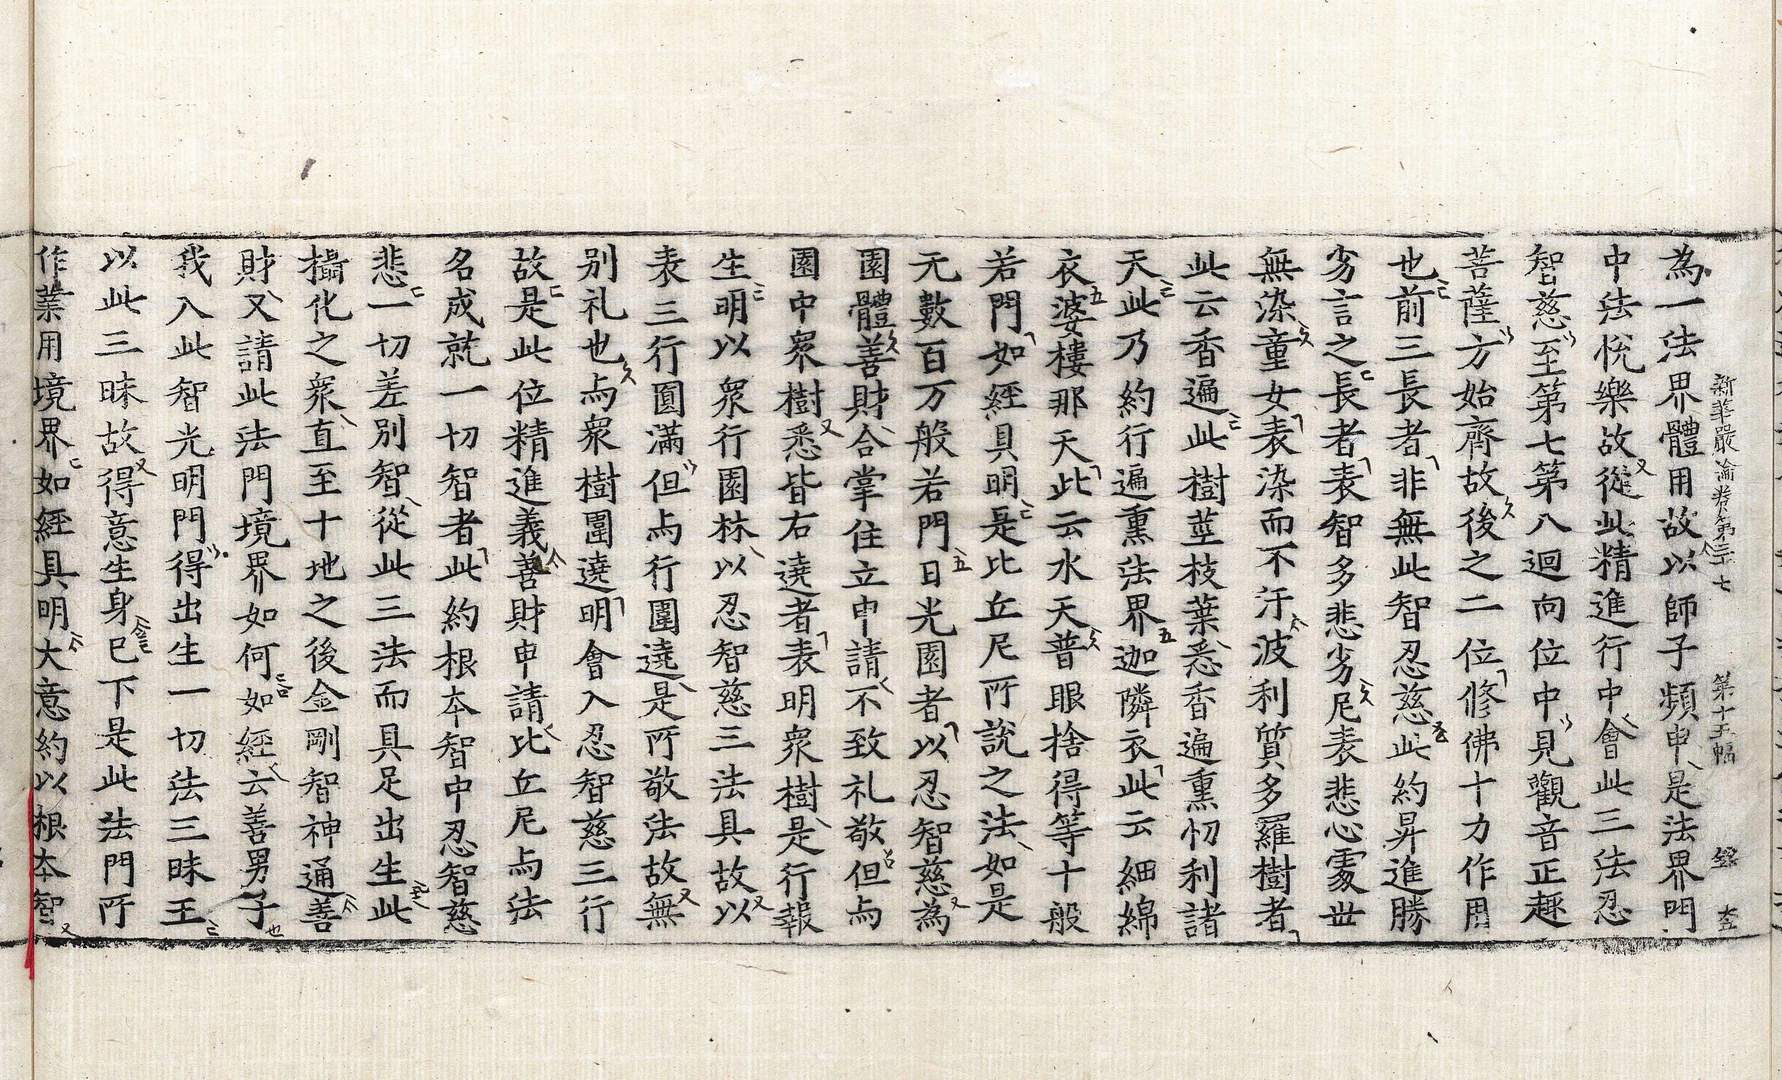 新華嚴論卷第三十七　第十五幅　錄　大五
為一法界體用故以師子頻申是法界門
中法恱樂故從此精進行中會此三法忍
智慈至第七第八迴向位中見觀音正趣
菩薩方始齊故後之二位修佛十力作用
也前三長者非無此智忍慈此約昇進勝
劣言之長者表智多悲劣尼表悲心處世
無染童女表染而不汙波利質多羅樹者
此云香遍此樹莖枝葉悉香遍熏忉利諸
天此乃約行遍熏法界迦隣衣此云細綿
衣婆樓那天此云水天普眼捨得等十般
若門如經具明是比丘尼所說之法如是
无數百万般若門日光園者以忍智慈為
園體善財合掌住立申請不致礼敬但与
園中眾樹悉皆右遶者表明眾樹是行報
生明以眾行園林以忍智慈三法具故以
表三行圓滿但与行圍遶是所敬法故無
別礼也与眾樹圍遶明會入忍智慈三行
故是此位精進義善財申請比丘尼与法
名成就一切智者此約根本智中忍智慈
悲一切差別智從此三法而具足出生此
攝化之眾直至十地之後金剛智神通善
財又請此法門境界如何如經云善男子
我入此智光明門得出生一切法三昧王
以此三昧故得意生身已下是此法門所
作業用境界如經具明大意約以根本智